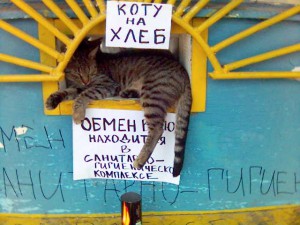 КОТУ
НА
ХЛЕБ
ОБМЕН
НАХОДИТСЯ
В
САНИТАРНО-
ГИГИЕНИЧЕСКО
КОМПЛЕКСЕ
МЕН
АНИТАРНО-ГИГИЕН